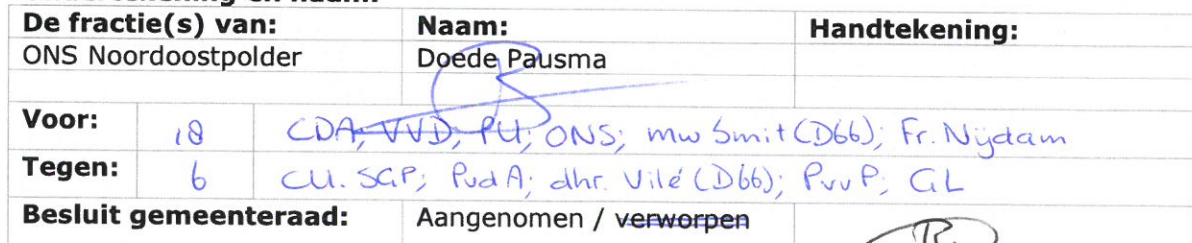 De fractie(s) van: Naam: Handtekening:
ONS Noordoostpolder Doede Pausma
Voor: 18 CDA, VVD; PU; ONS; mw Smit (D66); Fr. Nijdam
Tegen: 6 CU.SGP; PvdA; dhr. Vilé (D66); PvvP; GL
Besluit gemeenteraad: Aangenomen / verworpen